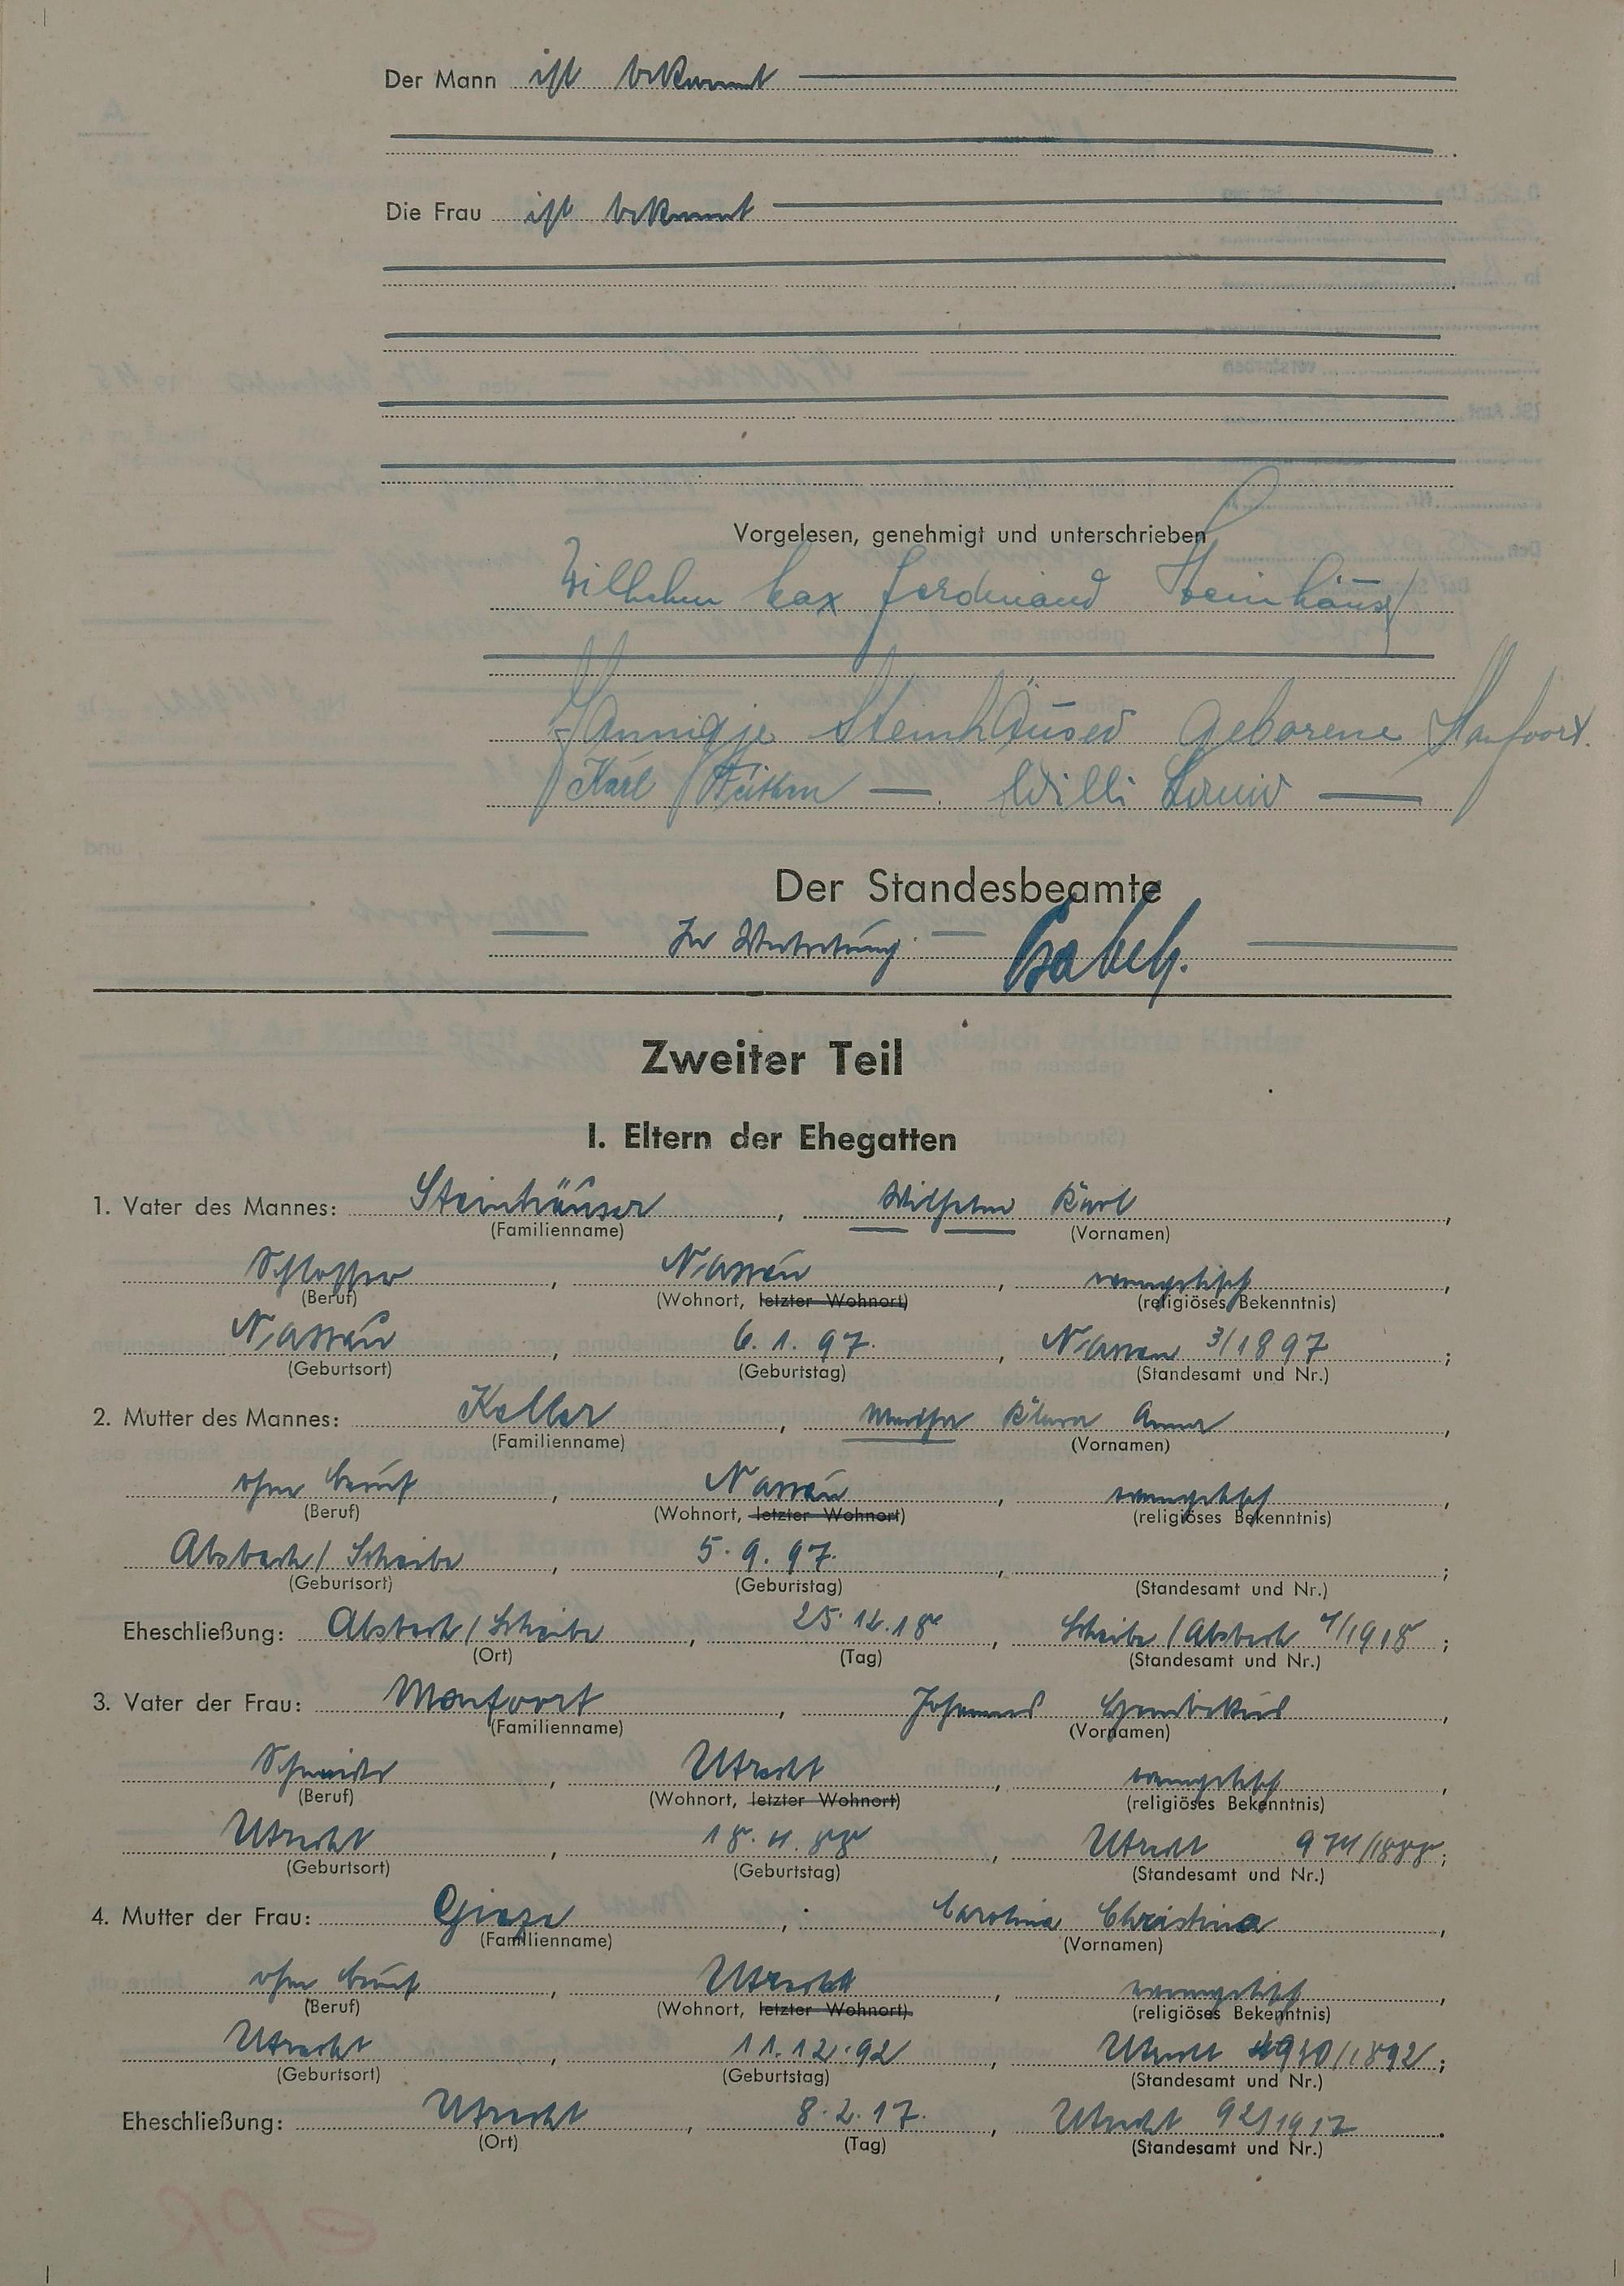 Der Mann ist bekannt
Die Frau ist bekannt
Vorgelesen, genehmigt und unterschrieben
Wilhelm Max Ferdinand Steinhäuser
Hannigje Steinhäuser geborene Manfoort.
Karl Willi
Der Standesbeamte
In Vertretung:
Zweiter Teil
I. Eltern der Ehegatten
1. Vater des Mannes: Steinhäuser, Wilhelm Karl
(Familienname) (Vornamen)
Schlosser, Nassau, evangelisch,
(Beruf) (Wohnort, letzter Wohnort) (religiöses Bekenntnis)
Nassau, 6. 1. 97., Nassau 3/1897;
(Geburtsort) (Geburtstag) (Standesamt und Nr.)
2. Mutter des Mannes: Keller, Martha Klara Anna,
(Familienname) (Vornamen)
ohne Beruf, Nassau, evangelisch,
(Beruf) (Wohnort, letzter Wohnort) (religiöses Bekenntnis)
Alsbach/Scheibe, 5. 9. 97., ;
(Geburtsort) (Geburtstag) (Standesamt und Nr.)
Eheschließung: Alsbach/Scheibe, 25. 12. 18, Scheibe/Alsbach /1918;
(Ort) (Tag) (Standesamt und Nr.)
3. Vater der Frau: Monfoort, Johannes
(Familienname) (Vornamen)
Schmied, Utrecht, evangelisch,
(Beruf) (Wohnort, letzter Wohnort) (religiöses Bekenntnis)
Utrecht, 18. 4. 88, Utrecht /1888;
(Geburtsort) (Geburtstag) (Standesamt und Nr.)
4. Mutter der Frau: Carolina Christina,
(Familienname) (Vornamen)
ohne Beruf, Utrecht, evangelisch,
(Beruf) (Wohnort, letzter Wohnort) (religiöses Bekenntnis)
Utrecht, 11. 12. 92, Utrecht /1892;
(Geburtsort) (Geburtstag) (Standesamt und Nr.)
Eheschließung: Utrecht, 8. 2. 17., Utrecht 92/1917.
(Ort) (Tag) (Standesamt und Nr.)